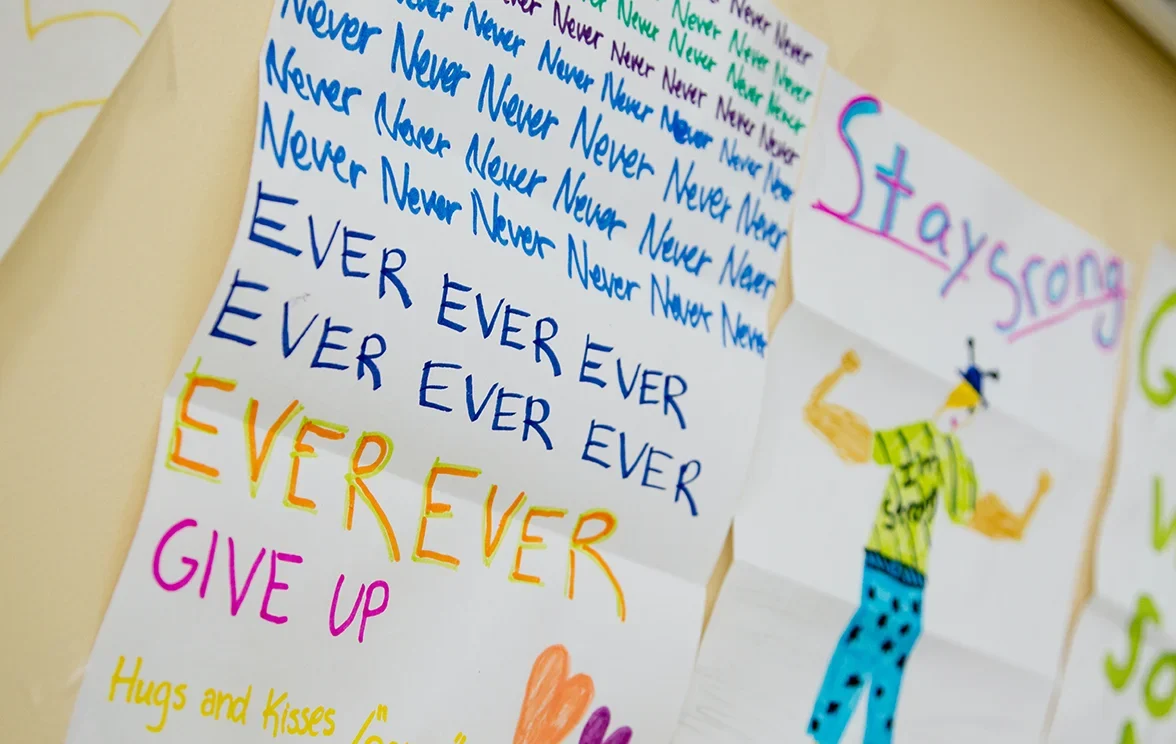 Never Never
Never Never Never
Never Never Never Never
Never Never Never Never Never
Never Never Never Never Never Never
Never Never Never Never Never Never
Never Never Never Never Never Never
Never Never Never Never Never Never
EVER EVER EVER
EVER EVER EVER
EVER EVER
GIVE UP
Hugs and Kisses
Stay srong
I'm
strong